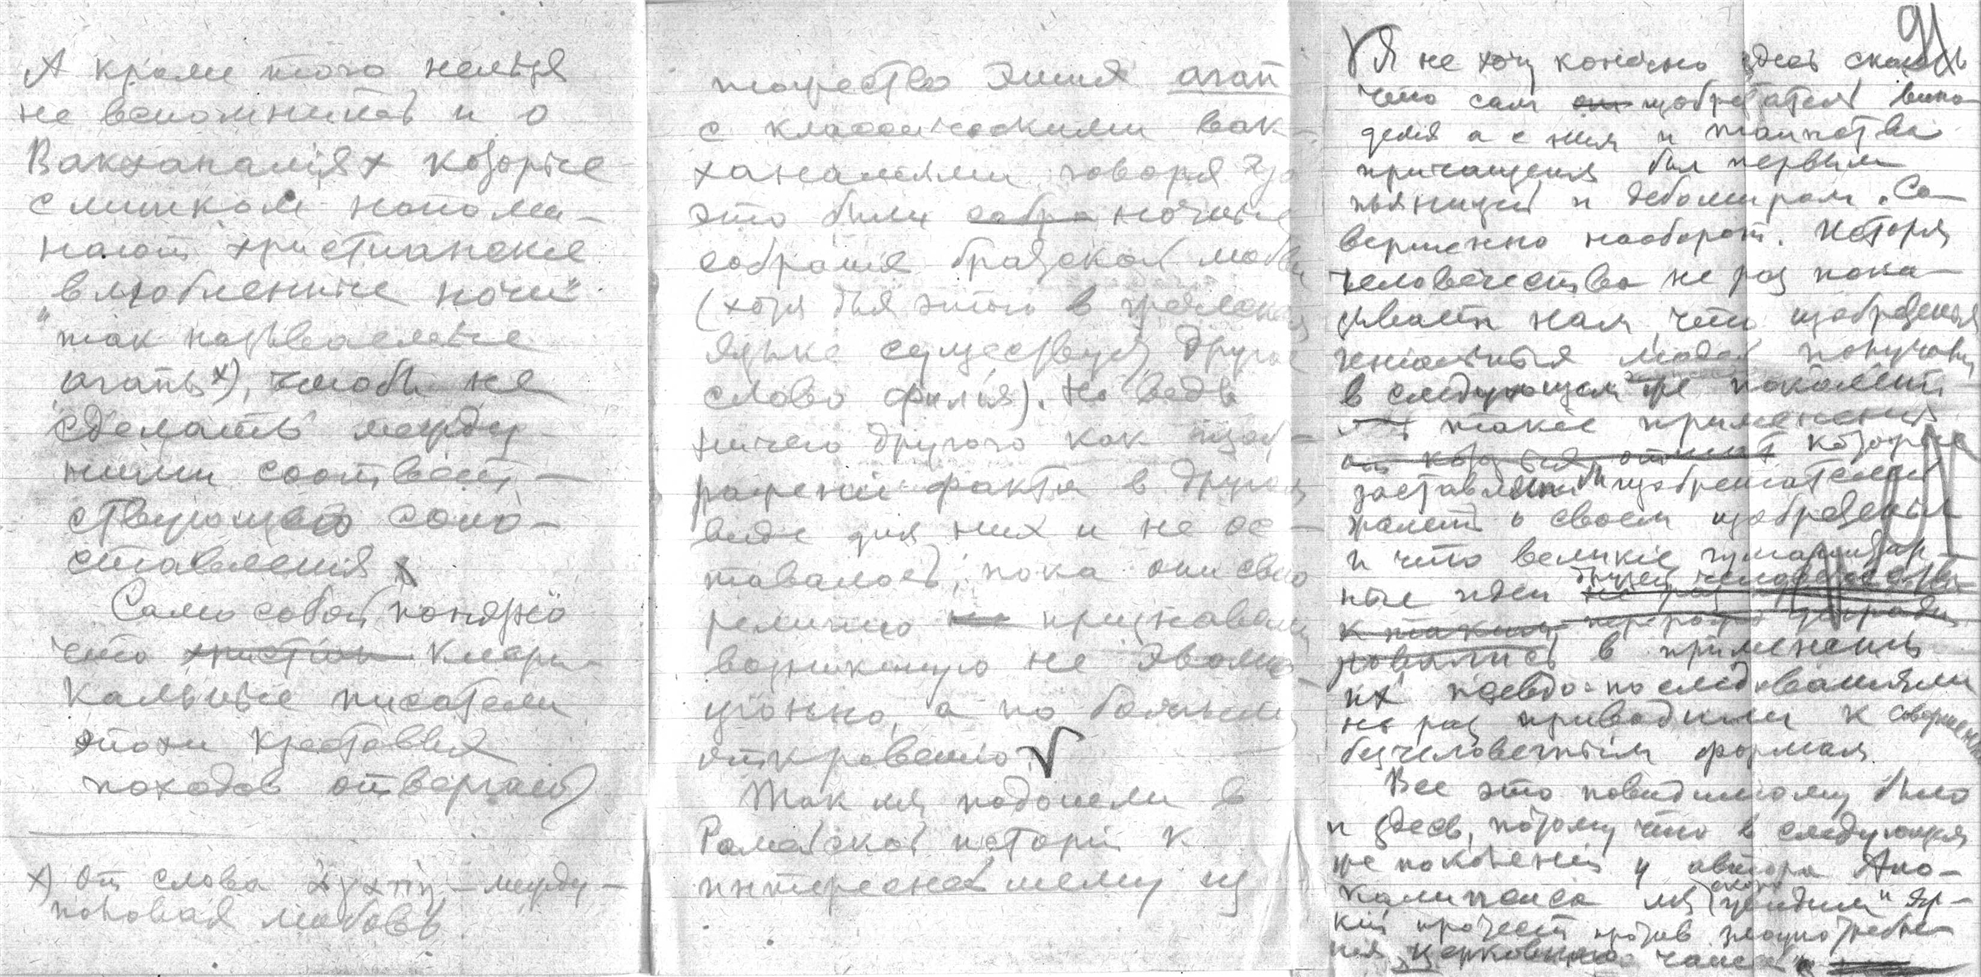 А кроме того нельзя
не вспомнить и о
Вакханаліях которые
слишком напоми-
нают христианские
"влюбленные ночи"
так называемые
агапы х), чтобы не
сделать между
ними соответ-
ствующего сопо-
ставления х
Само собой понятно
что христіан клери-
кальные писатели
эпохи крестовых
походов отвергают
х) От слова ἀγάπη – между-
половая любовь
тожество этих агап
с классическими вак-
ханаліями говоря что
это были собра ночные
собрания братской любви
(хотя для этого в греческом
языке существует другое
слово филія). Но ведь
ничего другого как изоб-
ражение факта в другом
виде для них и не ос-
тавалось, пока они свою
религию не признавали
возникшую не эволю-
ціонно, а по божьему
откровению √
Так мы подошли в
Ромейской исторіи к
интереснейшему из
91
√ Я не хочу конечно здесь сказать
что сам он изобретатель вино-
делія а с ним и таинства
причащения был первым
пьяницей и дебоширом. Со-
вершенно наоборот. Исторія
человечества не раз пока-
зывает нам, что изобретенья
геніальных людей получают
в следующем же поколеніи
такіе применения
которые
заставляли бы изобретателей
жалеть о своем изобретеньи
и что великіе гуманитар-
ные идеи
в применении
их псевдо-последователями
не раз приводили к совершенно
безчеловечным формам.
Все это повидимому было
и здесь, потому что в следующем
же поколеніи у автора Апо-
калипсиса мы скоро увидим яр-
кій протест против злоупотребле-
ния "церковною чашею"